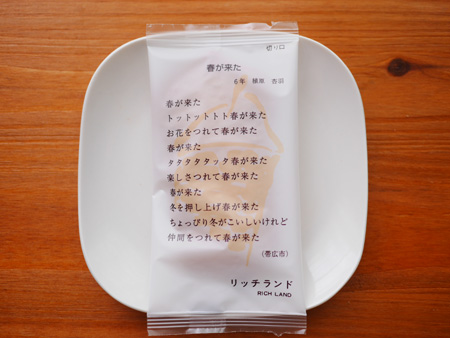 切り口
春が来た
6年 横原 杏羽
春が来た
トットットトト春が来た
お花をつれて春が来た
春が来た
タタタタタッタ春が来た
楽しさつれて春が来た
春が来た
冬を押し上げ春が来た
ちょっぴり冬がこいしいけれど
仲間をつれて春が来た
(帯広市)
リッチランド
RICH LAND